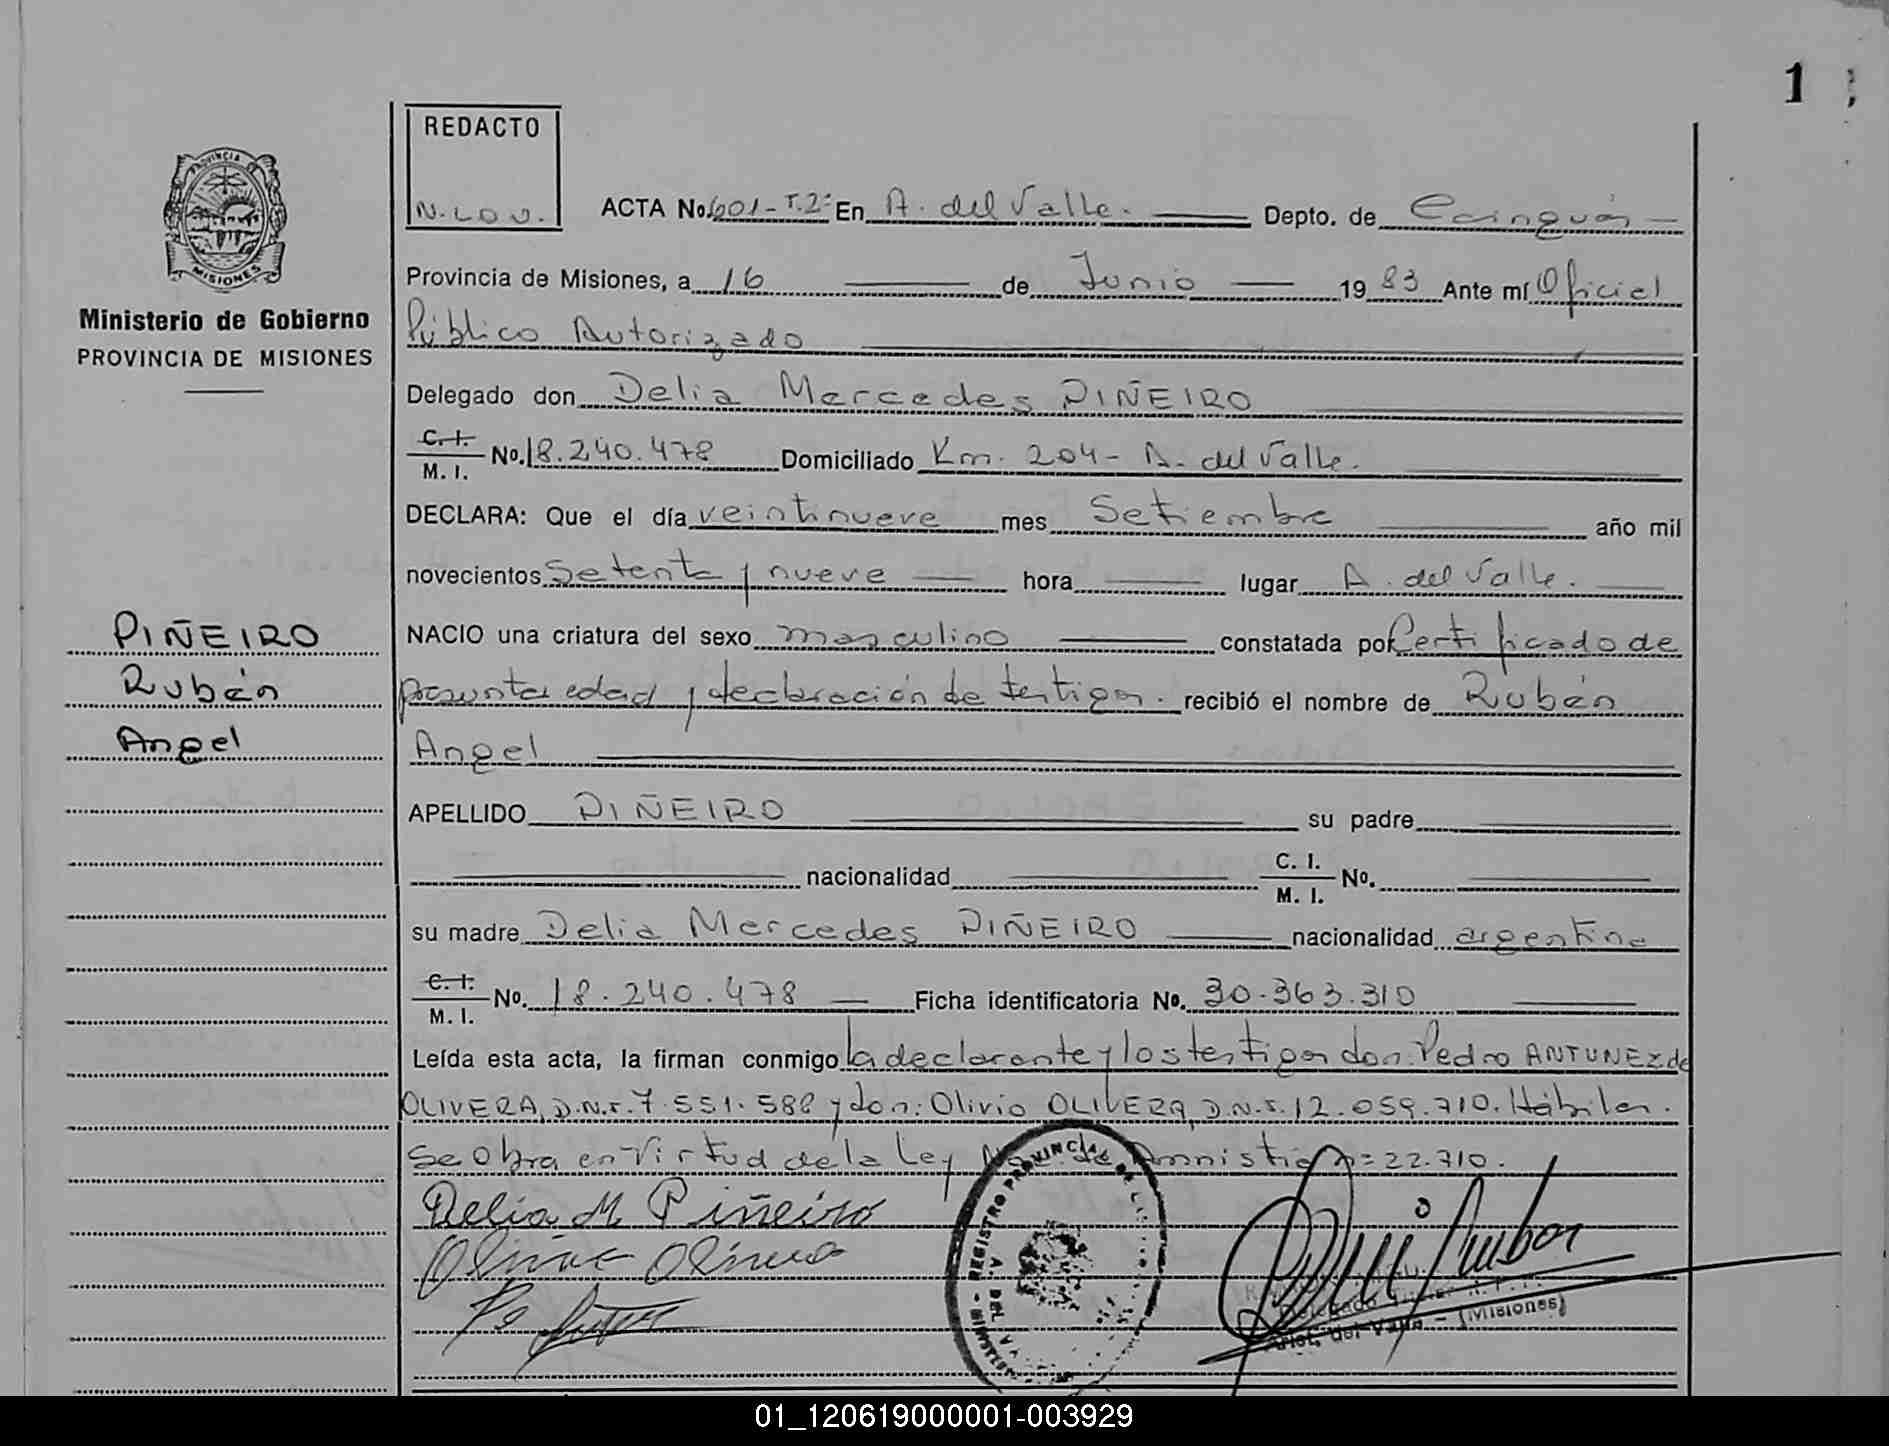 1
REDACTO
N.L.O.V.
PROVINCIA DE
MISIONES
Ministerio de Gobierno
PROVINCIA DE MISIONES
ACTA No. 601-T.2º En A. del Valle. Depto. de Cainguás
Provincia de Misiones, a 16 de Junio 1983 Ante mí Oficial
Público Autorizado
Delegado don Delia Mercedes PIÑEIRO
C. I. / M. I. No. 18.240.478 Domiciliado Km. 204- A. del Valle.
DECLARA: Que el día veintinueve mes Setiembre año mil
novecientos Setenta y nueve hora lugar A. del Valle.
PIÑEIRO
Rubén
Angel
NACIO una criatura del sexo masculino constatada por Certificado de
presunta edad y declaración de testigos. recibió el nombre de Rubén
Angel
APELLIDO PIÑEIRO su padre
nacionalidad C. I. / M. I. No.
su madre Delia Mercedes PIÑEIRO nacionalidad argentina
C. I. / M. I. No. 18.240.478 Ficha identificatoria No. 30.363.310
Leída esta acta, la firman conmigo la declarante y los testigos don: Pedro ANTUNEZ de
OLIVERA, D.N.I. 7.551.588 y don: Olivio OLIVERA, D.N.I. 12.059.710. Hábiles.
Se Obra en Virtud de la Ley de Amnistía n= 22.710.
Delia M Piñeiro
REGISTRO PROVINCIAL DE
A. DEL VA
Delegado
Arist. del Valle - (Misiones)
01_120619000001-003929